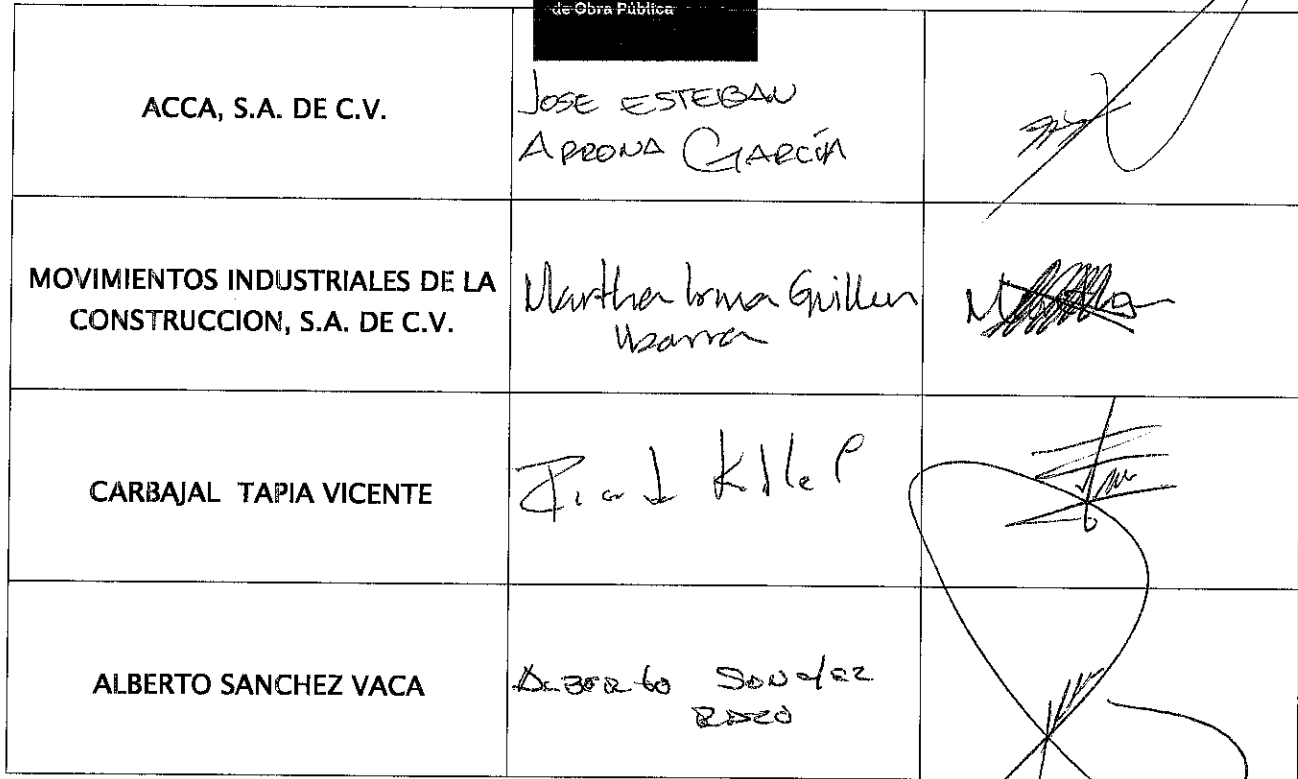 de Obra Pública
ACCA, S.A. DE C.V.
JOSE ESTEBAN
ARRONA GARCÍA
MOVIMIENTOS INDUSTRIALES DE LA
CONSTRUCCION, S.A. DE C.V.
Martha Irma Guillen
Ibarra
CARBAJAL TAPIA VICENTE
ALBERTO SANCHEZ VACA
Alberto Sanchez